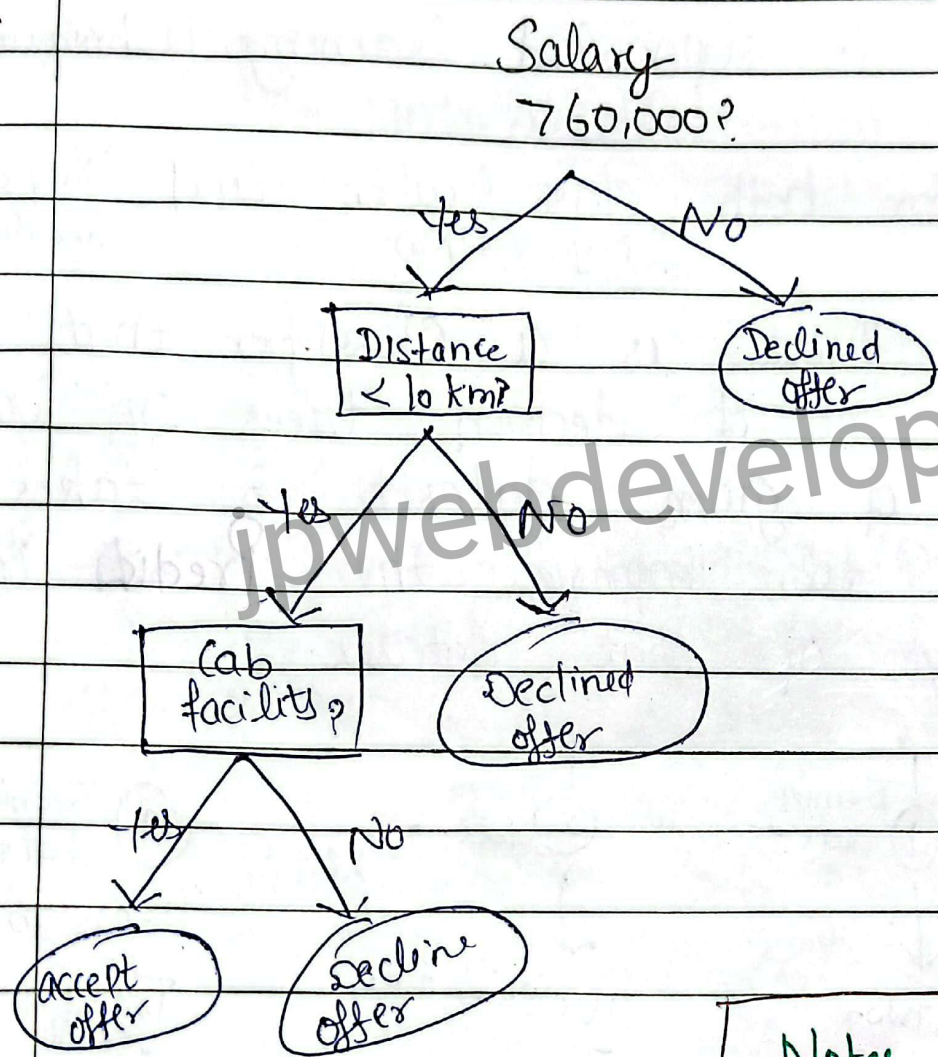 Salary
>60,000?
Yes
No
Distance
< 10 km?
Declined
offer
Yes
No
jpwebdevelop
Cab
facilits?
Declined
offer
Yes
No
accept
offer
Decline
offer
Notes